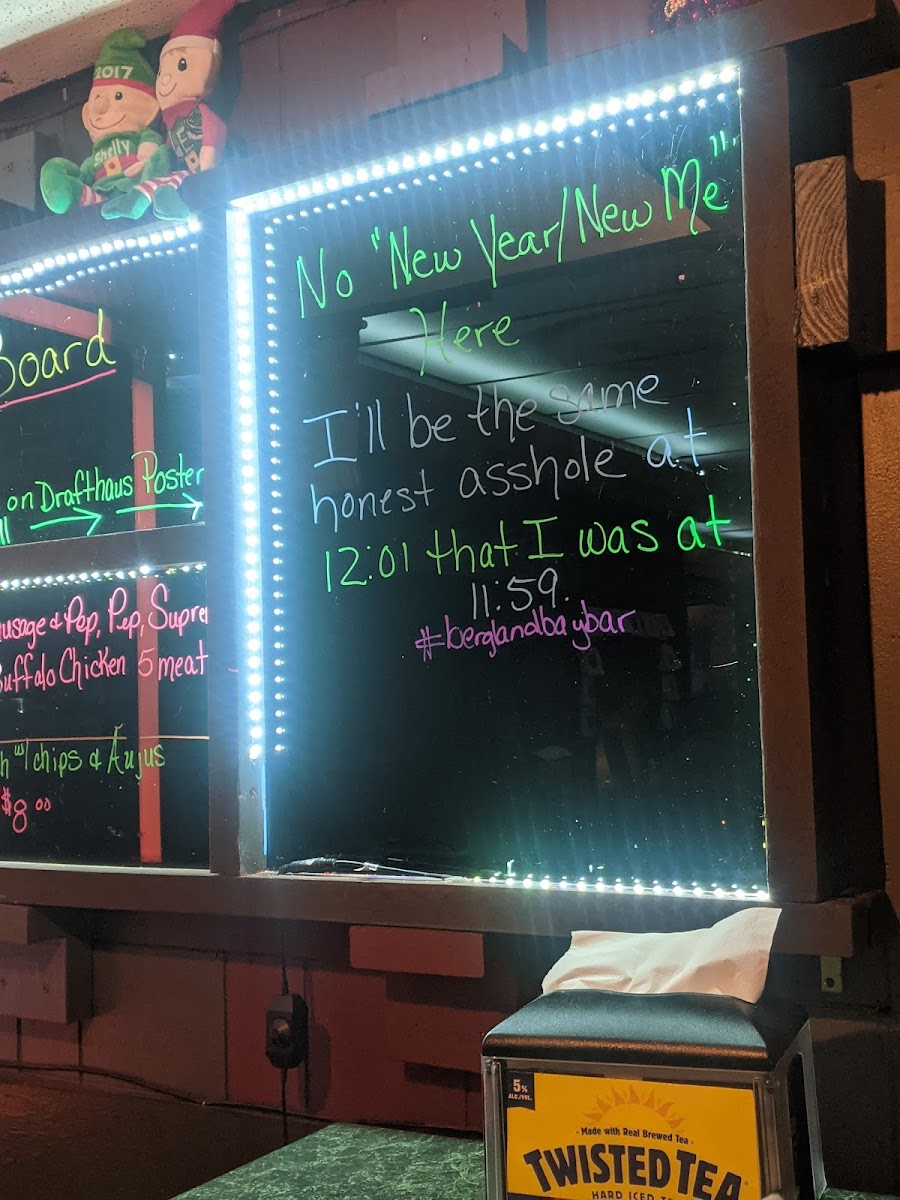 2017
Shelly
No "New Year/New Me"
Here
I'll be the same
honest asshole at
12:01 that I was at
11:59.
#berglandbaybar
Board
on Drafthaus Poster
& Pep, Pep,
Buffalo Chicken 5 meat
w/ chips & Aujus
$8.00
5%
ALC./VOL.
Made with Real Brewed Tea
TWISTED TEA
HARD ICED